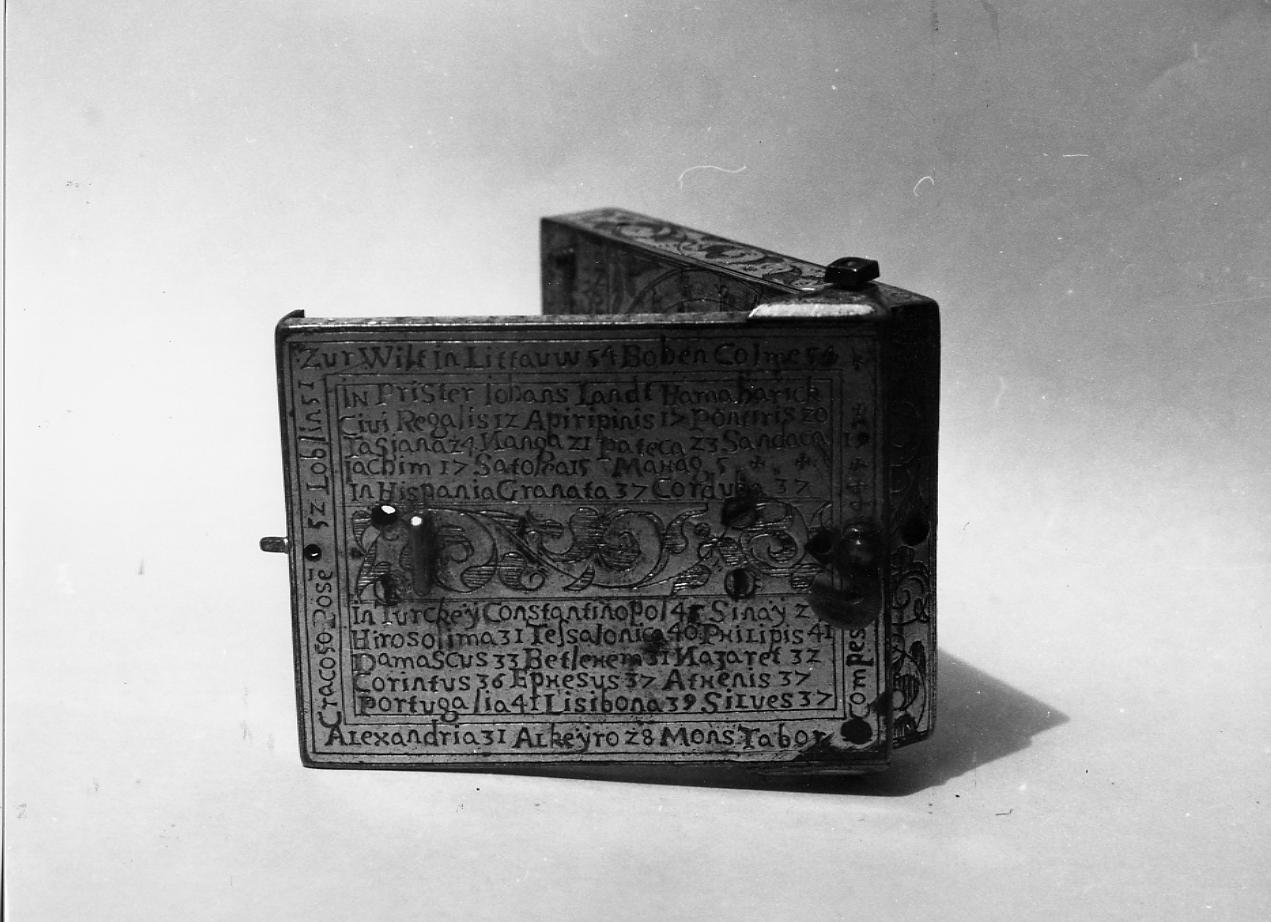 Zur Wilt in Littauw 54 Boben Colme 54
in Prister Iohans Landt Hamaharick
Civi Regalis 12 Apiripinis 17 Pontiris 20
Tasiana 24 Nanga 21 Pateca 23 Sandaca 19
Jachim 17 15 5
In Hispania Granata 37 Corduba 37
In Turckeÿ Constantinopol 41 Sinaÿ
Hirosolima 31 Tessalonica 40 Philipis 41
Damascus 33 Betlehem 31 Nazaret 32
Corintus 36 Ephesus 37 Athenis 37
Portugalia 41 Lisibona 39 Silves 37
Alexandria 31 Alkeÿro 28 Mons Tabor
Craco 50 Pose 52 Loblin 51
Compos